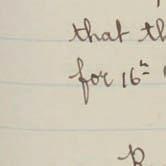 that th
for 16th